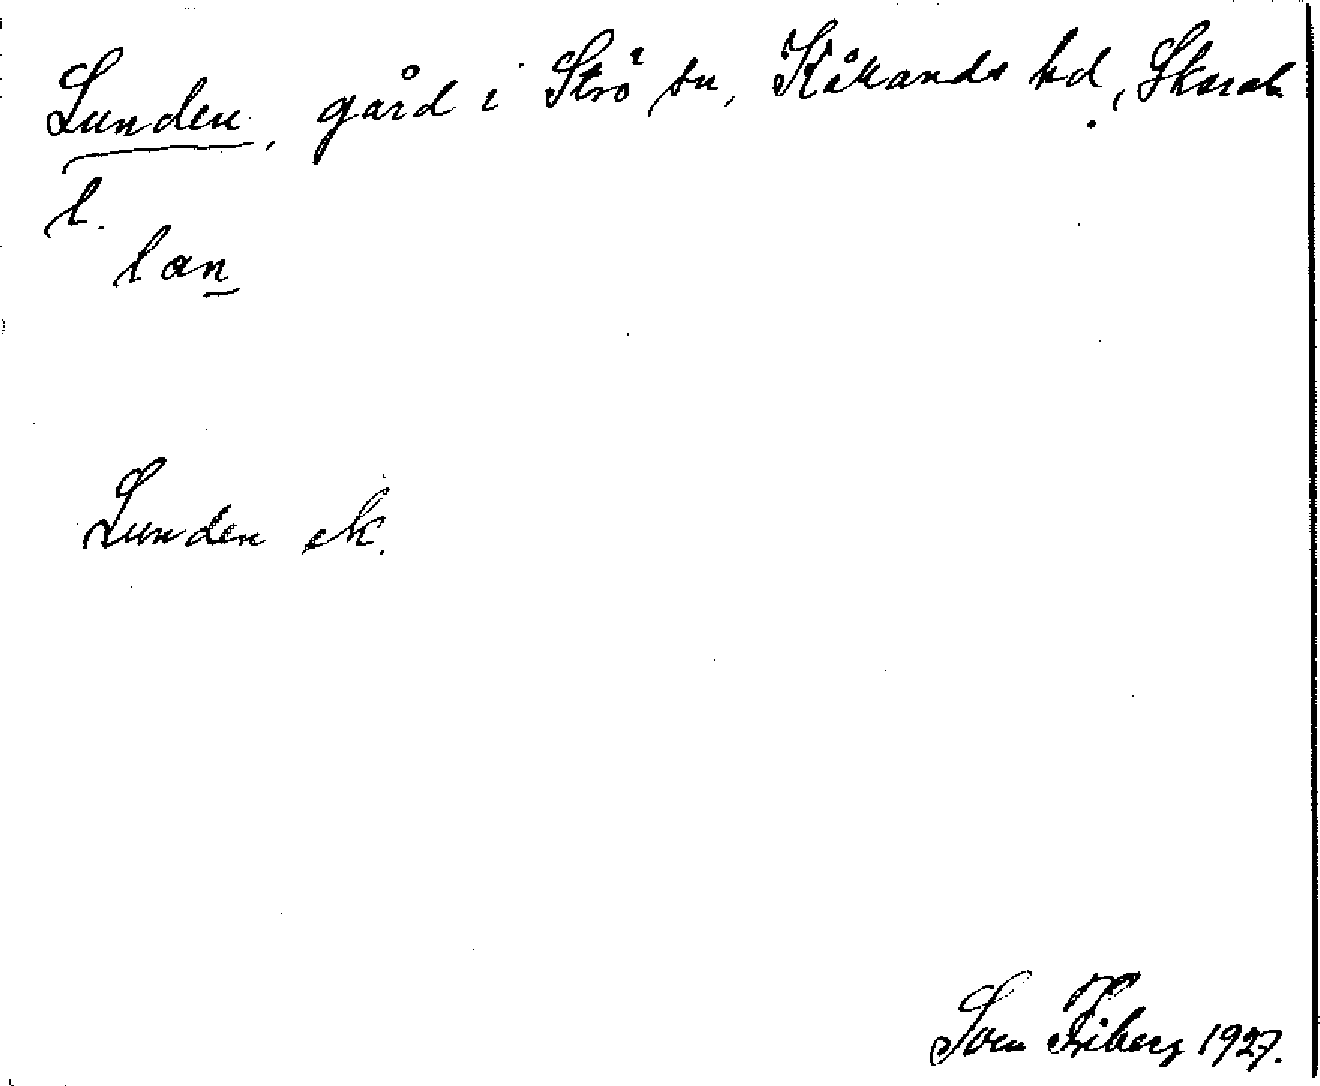 Lunden, gård i Strö sn, Kållands hd, Skarab.
l.
lan
Lunden ek.
Sven Friberg 1927.